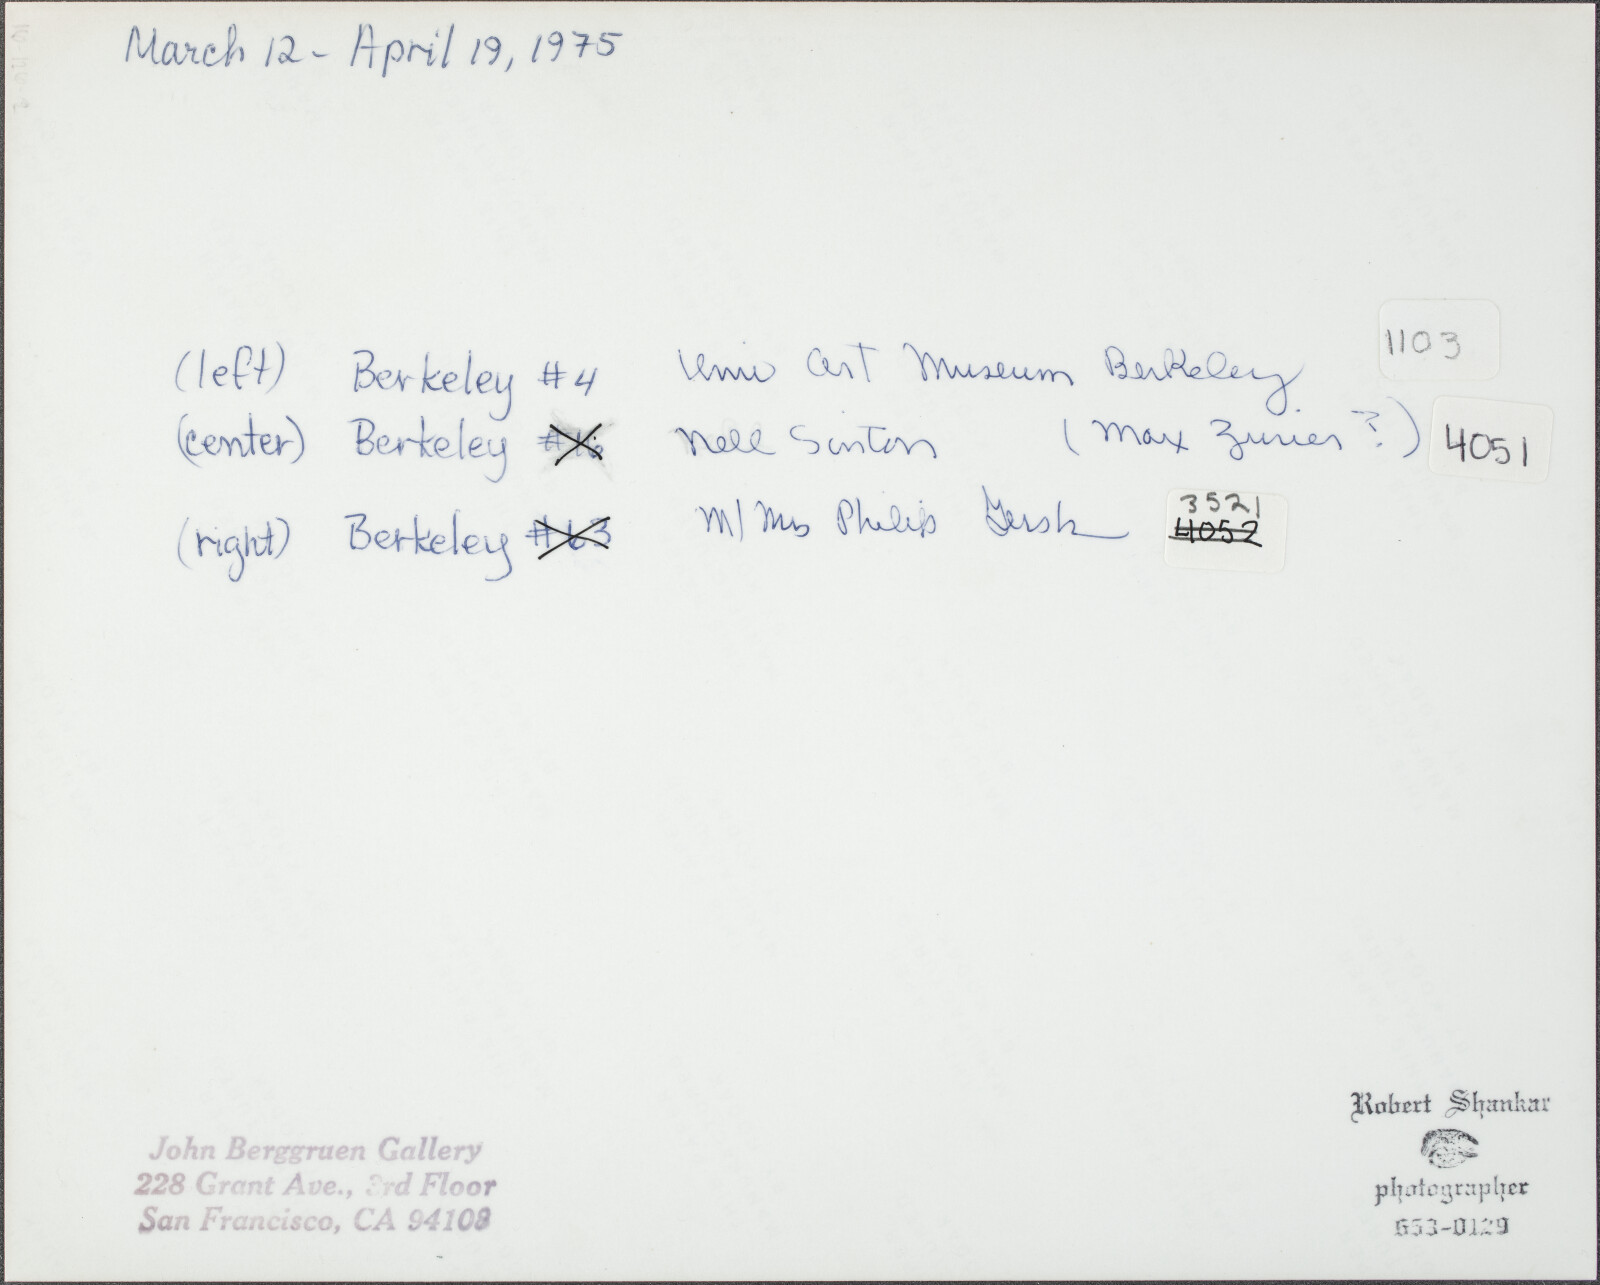 March 12 - April 19, 1975
1103
(left) Berkeley #4 Univ Art Museum Berkeley
(center) Berkeley # Nell Sinton (Max Zurier?) 4051
3521
(right) Berkeley #63 M/Mrs Philip Gersh 4052
John Berggruen Gallery
228 Grant Ave., 3rd Floor
San Francisco, CA 94108
Robert Shankar
photographer
653-0129